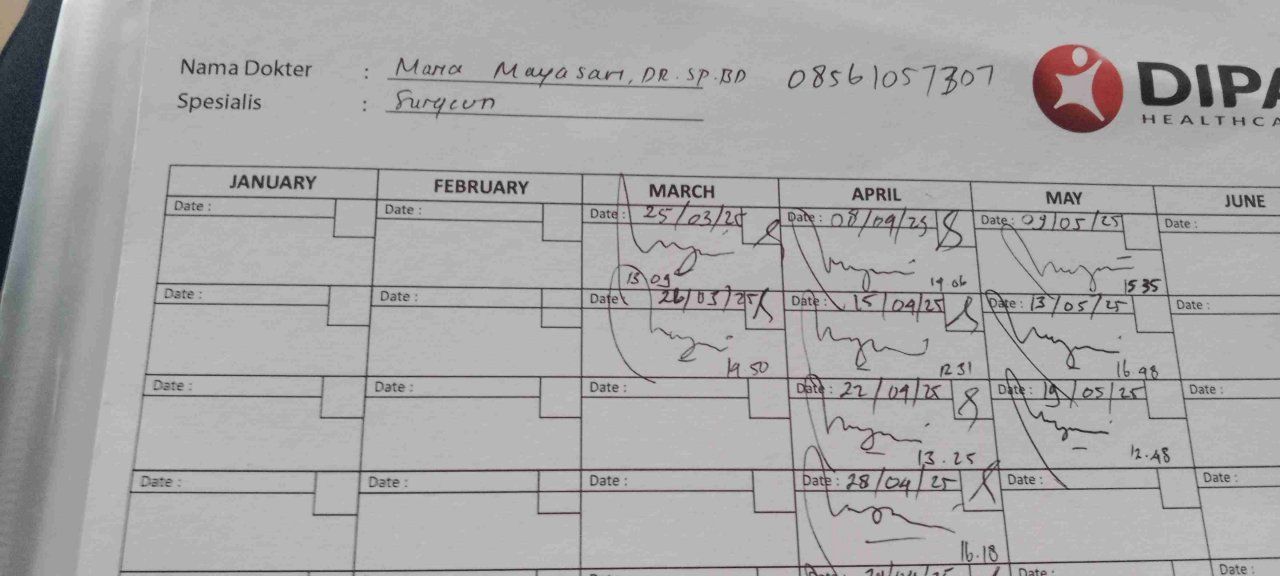 Nama Dokter : Maria Mayasari, DR. SP. BD 08561057307
Spesialis : Surgeon
DIPA
HEALTHCA
JANUARY FEBRUARY MARCH APRIL MAY JUNE
Date : Date : Date : 25/03/25 Date : 08/04/25 Date : 09/05/25 Date :
13 09 14 06 15 35
Date : Date : Date : 26/03/25 Date : 15/04/25 Date : 13/05/25 Date :
14 50 12 31 16.48
Date : Date : Date : Date : 22/04/25 Date : 19/05/25 Date :
13.25 12.48
Date : Date : Date : Date : 28/04/25 Date : Date :
16.18
Date : Date :